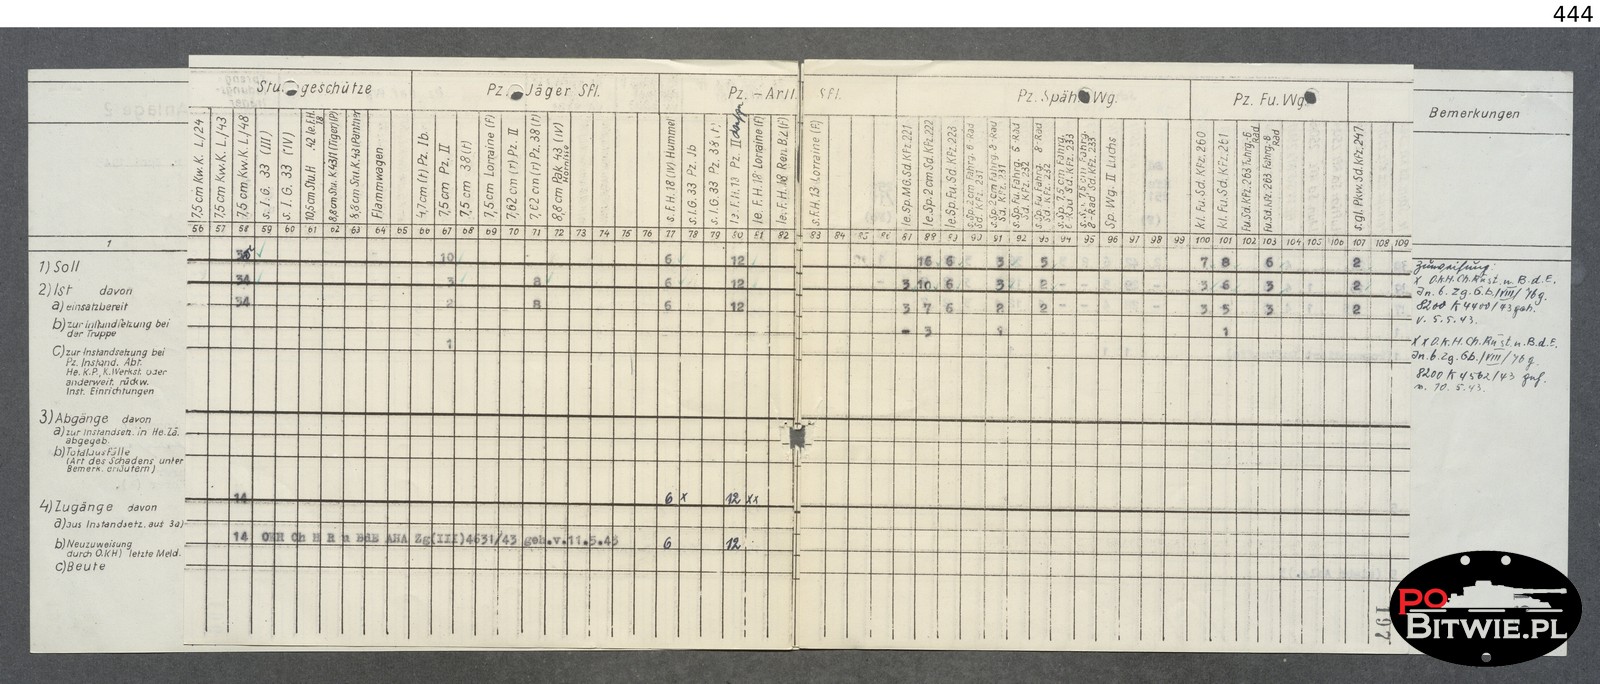 444
Stu geschütze
Pz. Jäger Sfl.
Pz. - Artl. Sfl.
Pz. Späh Wg.
Pz. Fu. Wg.
Bemerkungen
7,5 cm Kw.K. L/24
7,5 cm Kw.K. L/43
7,5 cm Kw.K. L/48
s. I. G. 33 (III)
s. I. G. 33 (IV)
10,5 cm Stu.H. 42 (le.F.H. 18
Flammwagen
4,7 cm (t) Pz. Ib.
7,5 cm Pz. II
7,5 cm 38 (t)
7,5 cm Lorraine (F)
7,62 cm (r) Pz. II
7,62 cm (r) Pz. 38 (t)
8,8 cm Pak 43 (IV) Hornisse
s. F. H. 18 (IV) Hummel
s. I. G. 33 Pz. Ib
s. I. G. 33 Pz. 38 (t)
le. F. H. 18 Lorraine (F)
s. F. H. 13 Lorraine (F)
le. Sp. MG. Sd. KFz. 221
le. Sp. 2 cm Sd. KFz. 222
le. Sp. Fu. Sd. KFz. 223
s. Sp. 2 cm Fahrg. 6 Rad Sd. KFz. 231
s. Sp. 2 cm Fahrg. 8 Rad Sd. KFz. 231
s. Sp. Fu. Fahrg. 6 Rad Sd. KFz. 232
s. Sp. Fu. Fahrg. 8 Rad Sd. KFz. 232
Sp. Wg. II Luchs
Kl. Fu. Sd. KFz. 260
Kl. Fu. Sd. KFz. 261
Fu. Sd. KFz. 263 Fahrg. 6 Rad
Fu. Sd. KFz. 263 Fahrg. 8 Rad
s. gl. Pkw. Sd. KFz. 247
1 56 57 58 59 60 61 62 63 64 65 66 67 68 69 70 71 72 73 74 75 76 77 78 79 80 81 82 83 84 85 86 87 88 89 90 91 92 93 94 95 96 97 98 99 100 101 102 103 104 105 106 107 108 109
1) Soll 10 6 12 16 6 3 5 7 8 6 2
2) Ist davon 34 3 8 6 12 3 10 6 3 2 3 6 3 2
a) einsatzbereit 34 2 8 6 12 3 7 6 2 2 3 5 3 2
b) zur Instandsetzung bei der Truppe - 3 1 1
C) zur Instandsetzung bei 1
Pz. Instand. Abt.
He. K.P., K. Werkst. oder
anderweit. rückw.
Inst. Einrichtungen
3) Abgänge davon
a) zur Instandsetz. in He. Za.
abgegeb.
b) Totalausfälle
(Art des Schadens unter
Bemerk. erläutern)
4) Zugänge davon 14 6 x 12 xx
a) aus Instandsetz. aus 3a)
b) Neuzuweisung 14 OKH Ch H R u BdE AHA Zg(III)4631/43 geh.v.11.5.43 6 12
durch O.K.H.) letzte Meld.
c) Beute
Zuweisung:
x O.K.H. Ch. Rüst. u. B.d.E.
8200 K 4400/43 geh.
v. 5.5.43.
xx O.K.H. Ch. Rüst. u. B.d.E.
8200 K 4562/43 geh.
v. 10.5.43.
197
PO
BITWIE.PL